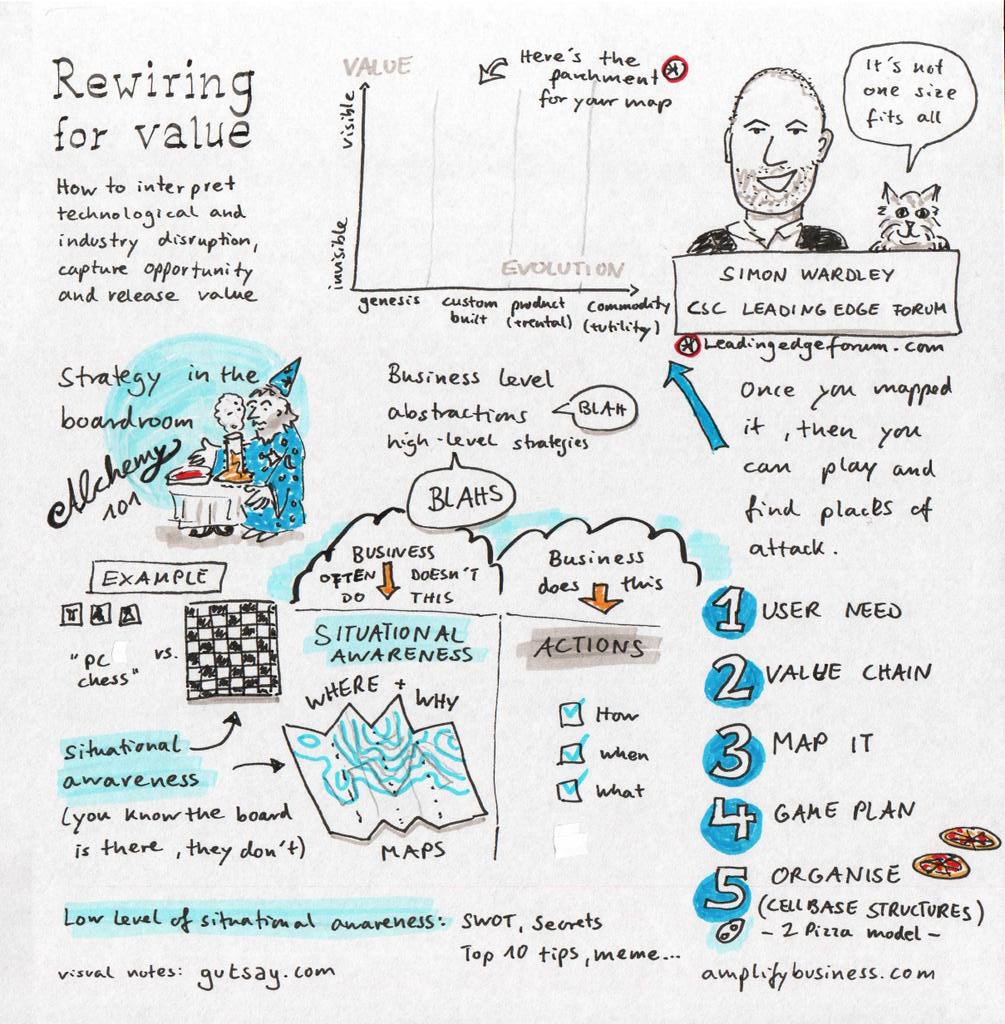 Rewiring
for value
How to interpret
technological and
industry disruption,
capture opportunity
and release value
VALUE
visible
invisible
Here's the
parchment
for your map
EVOLUTION
genesis
custom
built
product
(+rental)
commodity
(+utility)
It's not
one size
fits all
SIMON WARDLEY
CSC LEADING EDGE FORUM
Leadingedgeforum.com
Strategy in the
boardroom
Alchemy
101
Business level
abstractions
high-level strategies
BLAH
BLAHS
Once you mapped
it, then you
can play and
find places of
attack.
EXAMPLE
"PC
chess"
vs.
BUSINESS
OFTEN DOESN'T
DO THIS
Business
does this
SITUATIONAL
AWARENESS
WHERE + WHY
MAPS
ACTIONS
How
when
what
situational
awareness
(you know the board
is there, they don't)
1 USER NEED
2 VALUE CHAIN
3 MAP IT
4 GAME PLAN
5 ORGANISE
(CELL BASE STRUCTURES)
- 2 Pizza model -
Low level of situational awareness: SWOT, secrets
Top 10 tips, meme...
visual notes: gutsay.com
amplifybusiness.com